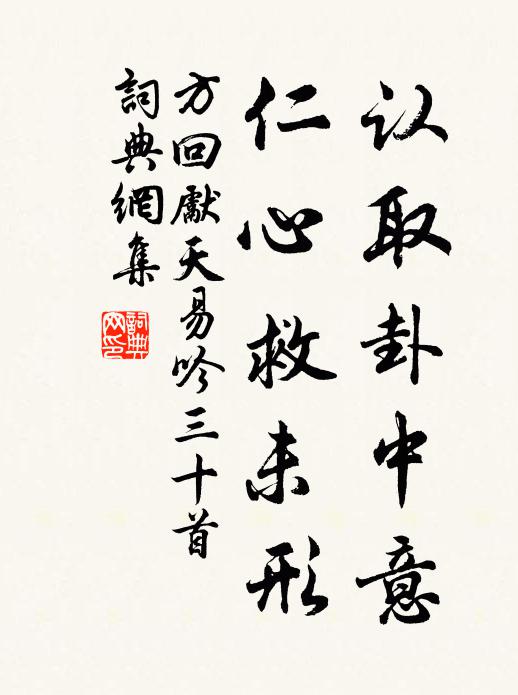 认取卦中意
仁心救未形
方回獻天易吟三十首
詞典網集
詞典網印